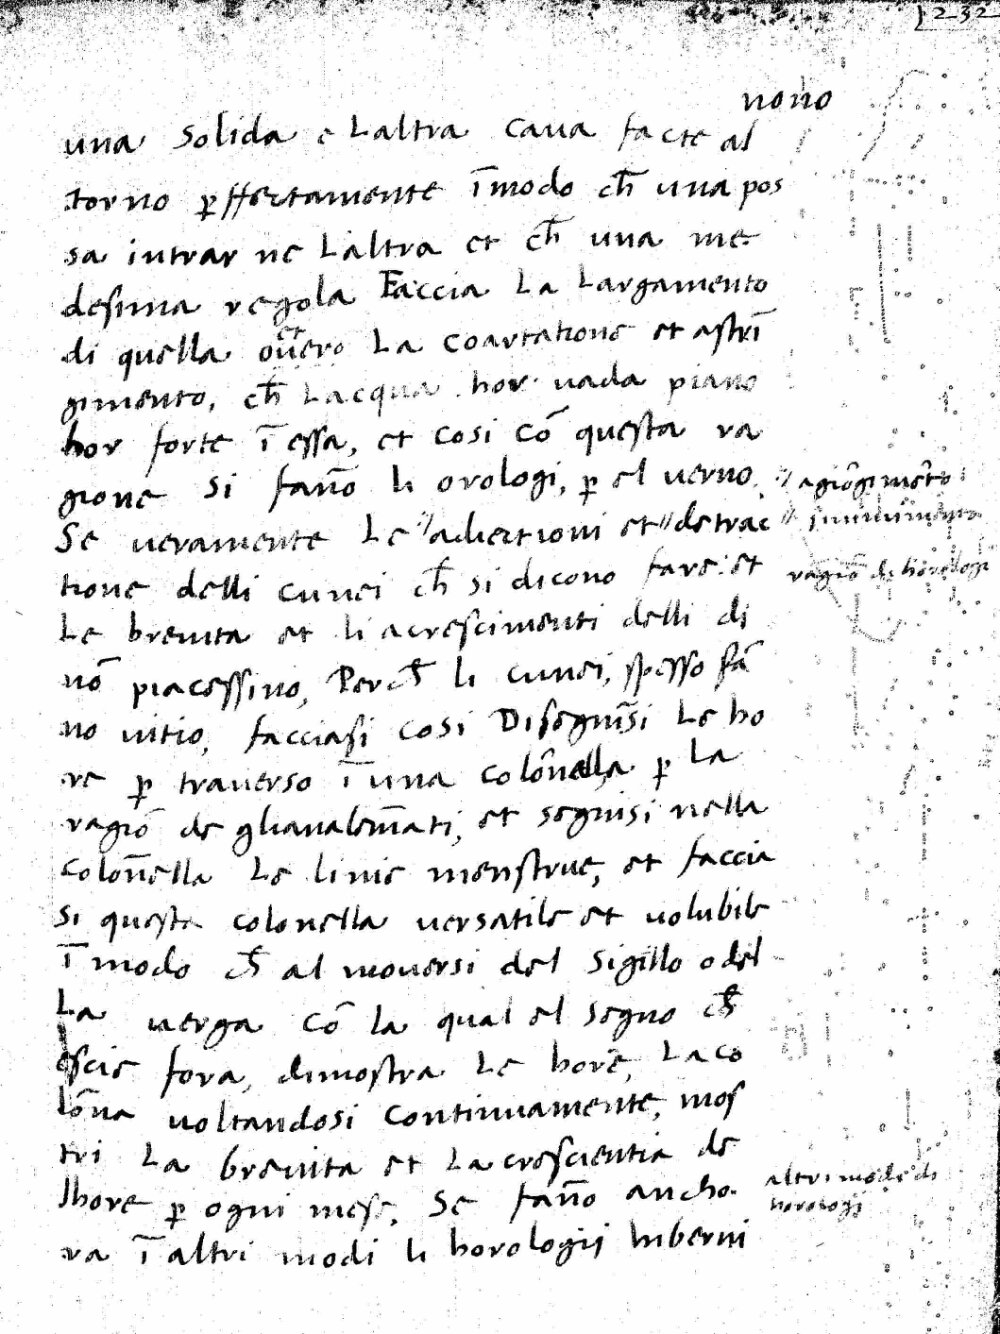 232
nono
una solida e Laltra caua facte al
torno p̲ffectamente ī modo ch̄ una pos
sa intrar ne Laltra et ch̄ una me
desima regola Faccia La Largamento
di quella ouero et La coartatione et astrī
gimento, ch̄ Lacqua hor uada piano
hor forte ī essa, et cosi cō questa ra
gione si fan̄o li orologi, p̲ el uerno.
agiōgimēto
Se ueramente Le "adiectioni et "detrac
ragiō de horologi
tione delli cunei ch̄ si dicono fare et
Le breuita et li acrescimenti delli di
nō piacessino, Perch̄ li cunei, spesso fā
no uitio, facciasi cosi Disegnīsi Le ho
re p̲ trauerso ī una colōnella p̲ La
ragiō de ghanalem̄ati, et segnisi nella
colōnella Le linie menstrue, et faccia
si questa colonella uersatile et uolubile
ī modo ch̄ al mouersi del sigillo o del
La uerga cō la qual el segno ch̄
escie fora, dimostra Le hore, La co
lōna uoltandosi continuamente, mos
tri La breuita et La crescientia de
altri modi di
horologi
lhore p̲ ogni mese, Se fan̄o ancho
ra ī altri modi li horologij hiberni